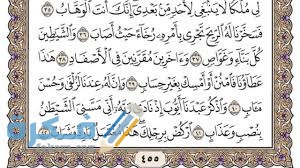 لِى مُلْكًا لَّا يَنۢبَغِى لِأَحَدٍ مِّنۢ بَعْدِىٓ إِنَّكَ أَنتَ ٱلْوَهَّابُ ٣٥
فَسَخَّرْنَا لَهُ ٱلرِّيحَ تَجْرِى بِأَمْرِهِۦ رُخَآءً حَيْثُ أَصَابَ ٣٦ وَٱلشَّيَٰطِينَ
كُلَّ بَنَّآءٍ وَغَوَّاصٍ ٣٧ وَءَاخَرِينَ مُقَرَّنِينَ فِى ٱلْأَصْفَادِ ٣٨ هَٰذَا
عَطَآؤُنَا فَٱمْنُنْ أَوْ أَمْسِكْ بِغَيْرِ حِسَابٍ ٣٩ وَإِنَّ لَهُۥ عِندَنَا لَزُلْفَىٰ وَحُسْنَ
مَـَٔابٍ ٤٠ وَٱذْكُرْ عَبْدَنَآ أَيُّوبَ إِذْ نَادَىٰ رَبَّهُۥٓ أَنِّى مَسَّنِىَ ٱلشَّيْطَٰنُ
بِنُصْبٍ وَعَذَابٍ ٤١ ٱرْكُضْ بِرِجْلِكَ هَٰذَا مُغْتَسَلٌۢ بَارِدٌ وَشَرَابٌ ٤٢
٤٥٥